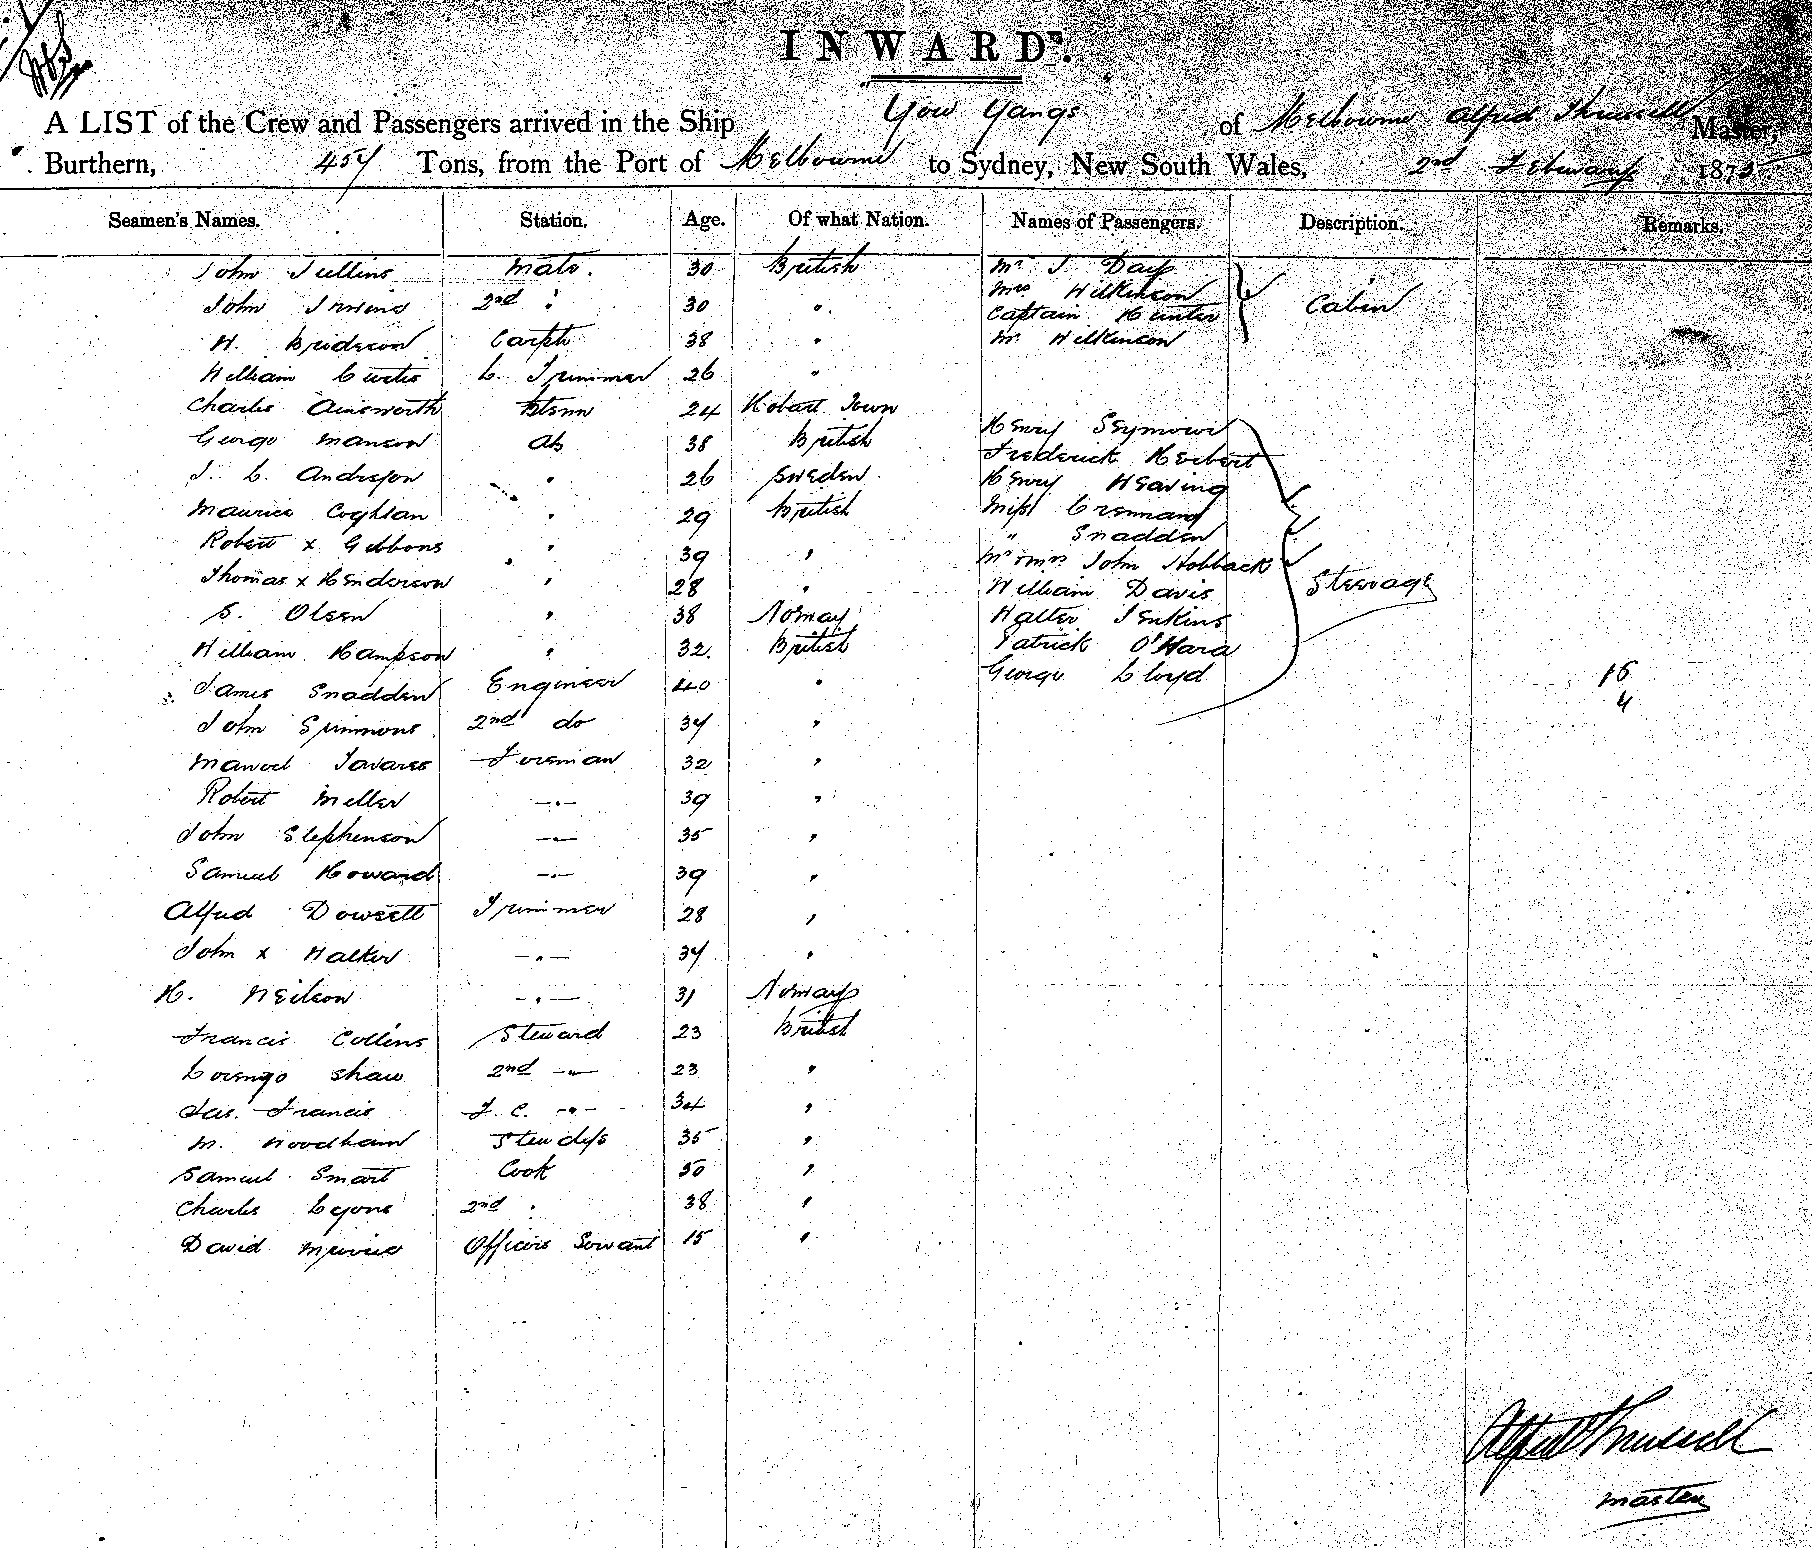 INWARDS.
A LIST of the Crew and Passengers arrived in the Ship You Yangs of Melbourne Alfred Thrussell Master,
Burthern, 457 Tons, from the Port of Melbourne to Sydney, New South Wales, 2nd February 1875
Seamen's Names. Station. Age. Of what Nation. Names of Passengers. Description. Remarks.
John Tullins Mate. 30 British Mr J Day
John Irvine 2nd " 30 " Mrs Wilkinson Cabin
Captain Hunter
W. Brideson Carptr 38 " Mr Wilkinson
William Curtis L. Trimmer 26 "
Charles Ainsworth 24 Hobart Town
George Manson Ab 38 British Henry Seymour
Frederick Herbert
J. L. Anderson " 26 Sweden Henry Hearing
Maurice Coghlan " 29 British Miss Crennany
" Snadden
Robert x Gibbons " 39 " Mr & Mrs John Hobback
Thomas x Henderson " 28 " William Davis Steerage
S. Olsen " 38 Norway Walter Jenkins
William Hampson " 32. British Patrick O'Hara
James Snadden Engineer 40 " George Lloyd 16
4
John Simmons 2nd do 37 "
Manoel Tavares Foreman 32 "
Robert Miller —"— 39 "
John Stephenson —"— 35 "
Samuel Howard —"— 39 "
Alfred Dowsett Trimmer 28 "
John x Walker —"— 37 "
H. Neilson —"— 31 Norway
Francis Collins Steward 23 British
Lorenzo Shaw 2nd —"— 23 "
Jas. Francis F. C. —"— 34 "
M. Woodham Stewdss 35 "
Samuel Smart Cook 50 "
Charles Lyons 2nd " 38 "
David Officers Servant 15 "
Alfred Thrussell
Master